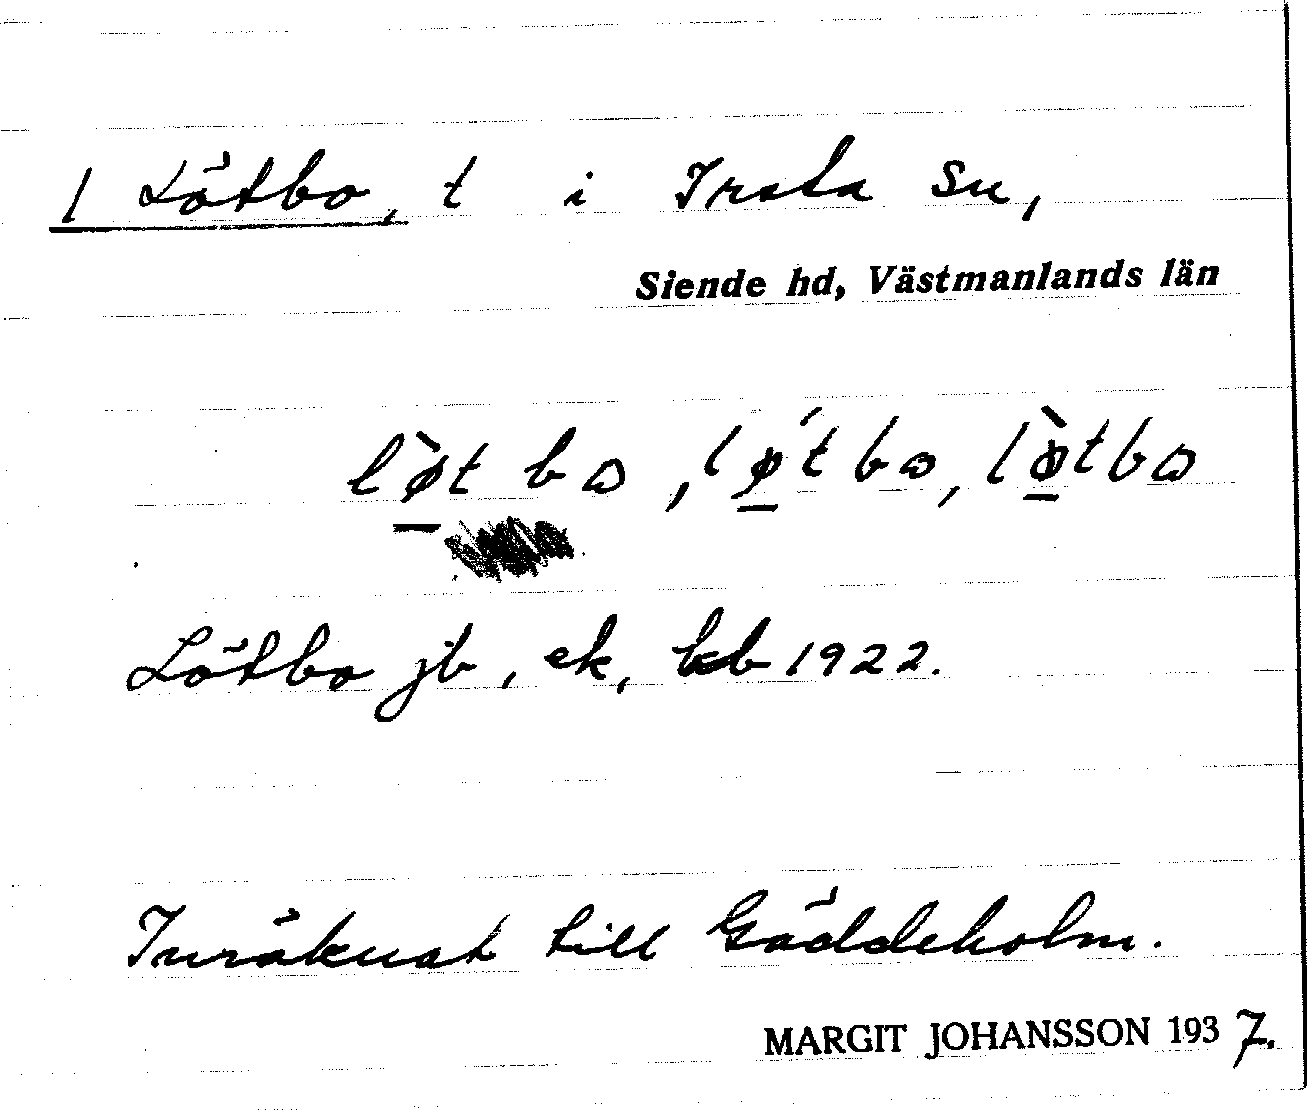 1 Lötbo, t i Irsta sn,
Siende hd, Västmanlands län
lø̀t bω, lǿ̱t bω, lø̱̀tbω
Lötbo jb, ek, kb 1922.
Inräknat till Gäddeholm.
MARGIT JOHANSSON 1937.